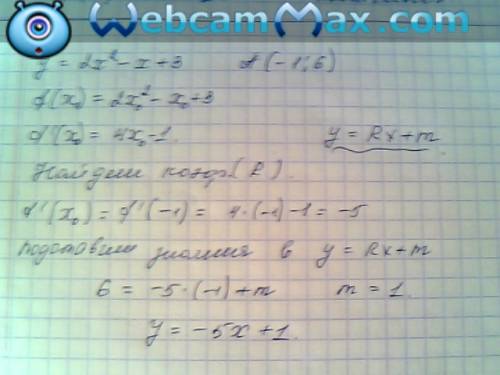 WebcamMax.com
y = 2x² - x + 3 A(-1; 6)
f(x₀) = 2x₀² - x₀ + 3
f'(x₀) = 4x₀ - 1. y = kx + m
Найдем коэф. (k).
f'(x₀) = f'(-1) = 4·(-1) - 1 = -5
подставим значения в y = kx + m
6 = -5·(-1) + m m = 1.
y = -5x + 1.